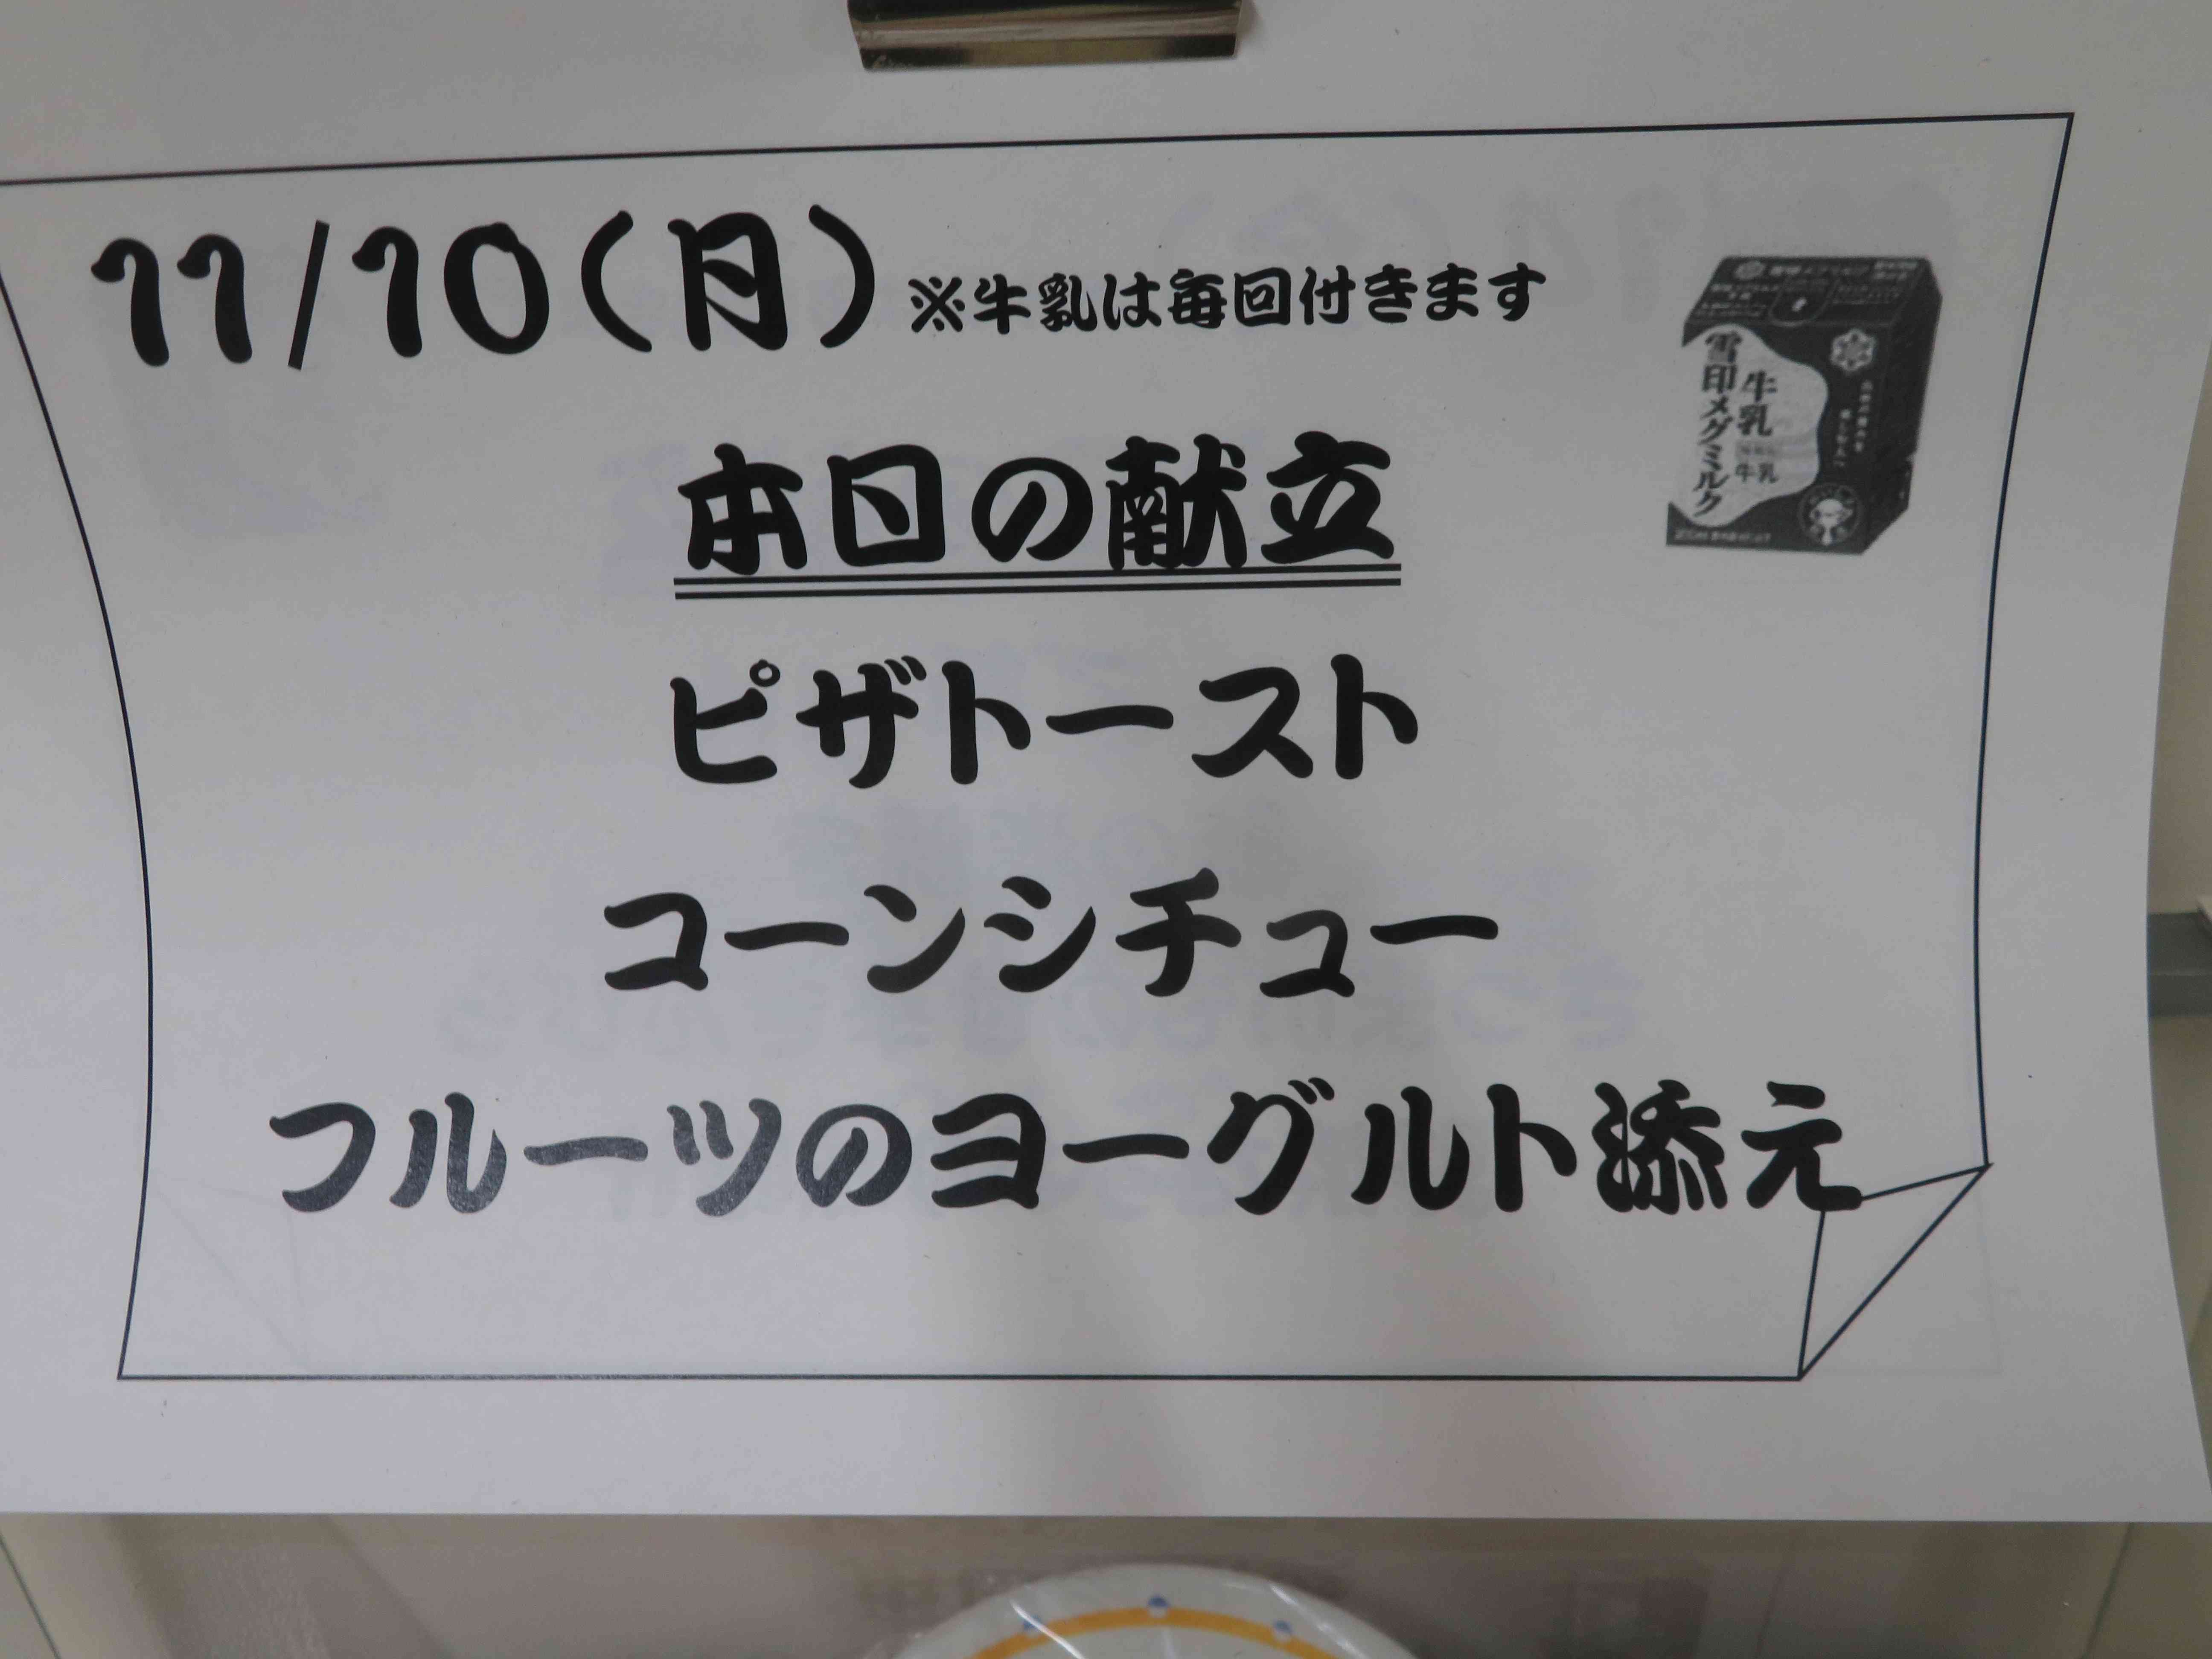 11/10（月）※牛乳は毎回付きます
雪印メグミルク
牛乳
牛乳
本日の献立
ピザトースト
コーンシチュー
フルーツのヨーグルト添え